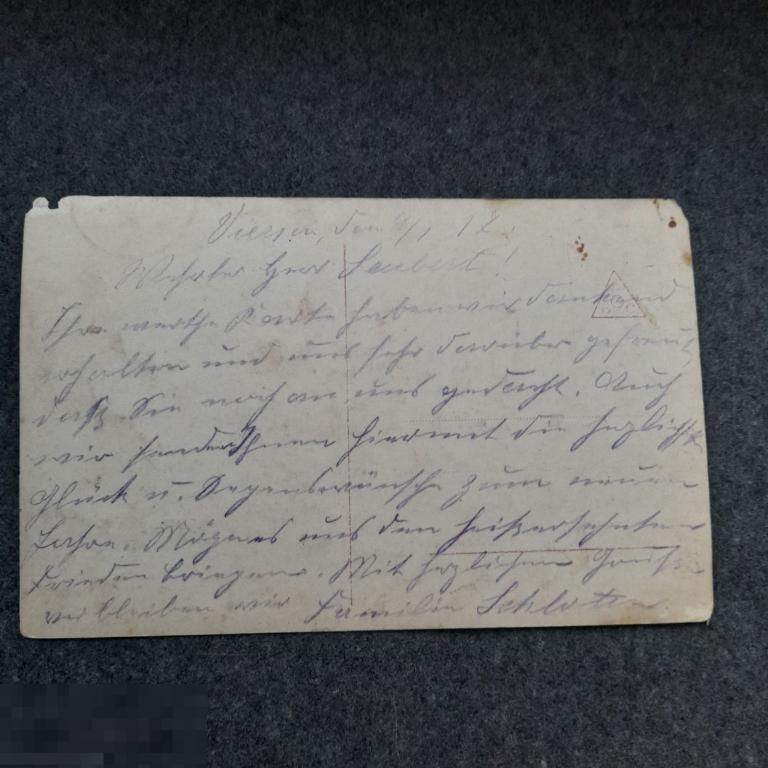 Viersen, den 4/1 17.
Wehrter Herr Seubert!
Ihre werthe Karte haben wir dankend
erhalten und uns sehr darüber gefreut,
daß Sie noch an uns gedacht. Auch
wir senden Ihnen hiermit die herzlichst
Glück u. Segenswünsche zum neuen
Jahre. Möge es uns den heißersehnten
Frieden bringen. Mit herzlichem Gruß
verbleiben wir Familie Schloten.